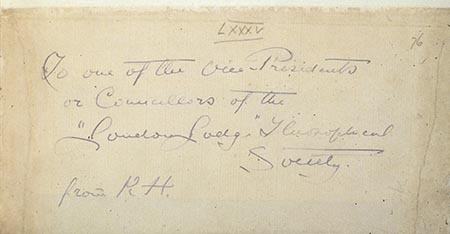 LXXXV
76
To one of the Vice-Presidents
or Councillors of the
"London Lodge" Theosophical
Society.
from K H.